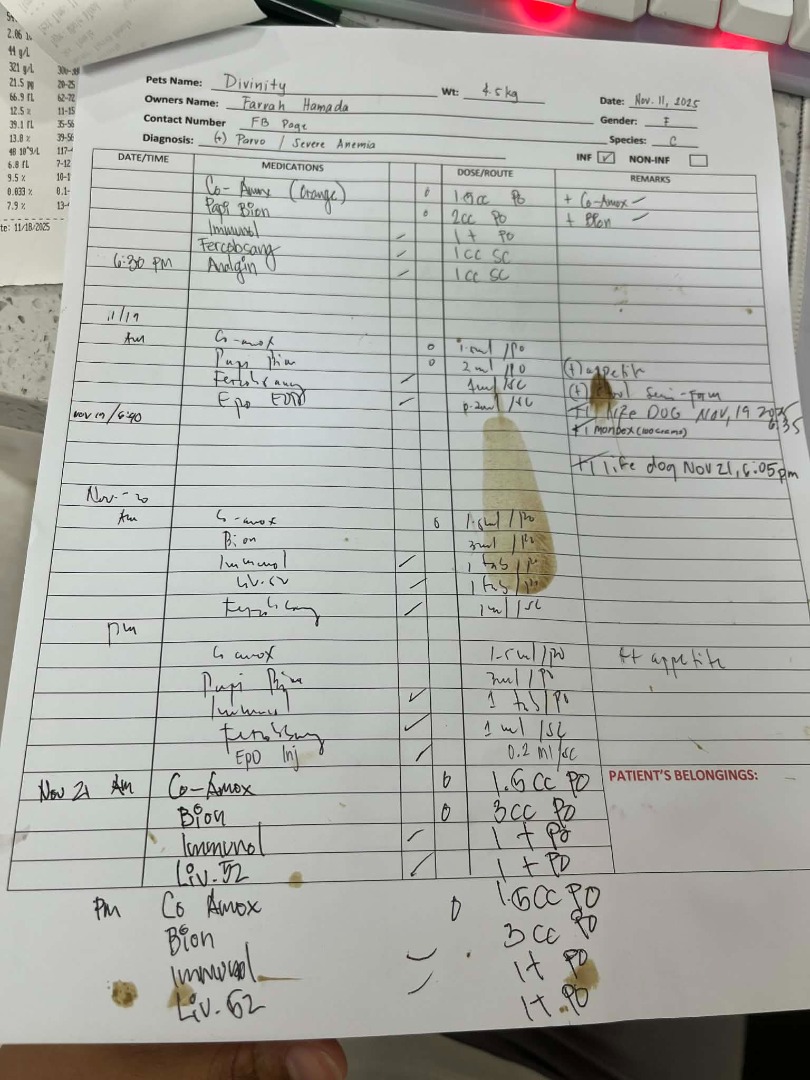 2.06
44 g/L
321 g/L
21.5 pg 20-25
66.9 fL 62-72
12.5 % 11-15
39.1 fL 35-56
13.8 % 39-56
48 10^9/L 117-
6.8 fL 7-12
9.5 % 10-1
0.033 % 0.1-
7.9 % 13-
te: 11/18/2025
Pets Name: Divinity Wt: 4.5 kg Date: Nov. 11, 2025
Owners Name: Farrah Hamada Gender: F
Contact Number FB Page Species: C
Diagnosis: (+) Parvo / Severe Anemia INF ✓ NON-INF
DATE/TIME MEDICATIONS DOSE/ROUTE REMARKS
Co-Amox (Orange) 1.5cc PO + Co-Amox
Papi Bion 2cc PO + Bion
Immunol 1 t PO
Fercobsang 1cc SC
6:30 PM Analgin 1cc SC
11/19
Am Co-amox 1.5ml /PO
Papi Bion 2ml /PO (+) appetite
Fercobsang 1ml /SC (+) stool semi-form
Epo 0.2ml /SC +1 life DOG NOV, 19 2025
Nov 19 / 6:40 6:35
+1 mondex (100 grams)
+1 life dog Nov 21, 6:05pm
Nov. - 20
Am Co-amox 1.5ml /PO
Bion 3ml /PO
Immunol 1 tab /PO
Liv-52 1 tab /PO
Fercobsang 1ml /SC
pm
Co amox 1.5ml /PO ++ appetite
Papi Bion 3ml /PO
Immunol 1 tab /PO
Fercobsang 1 ml /SC
EpO Inj 0.2 ml /SC
Nov 21 Am Co-Amox 1.5 cc PO PATIENT'S BELONGINGS:
Bion 3cc PO
Immunol 1 t PO
Liv.52 1 t PO
Pm Co Amox 1.5cc PO
Bion 3 cc PO
Immunol 1t PO
Liv.52 1t PO